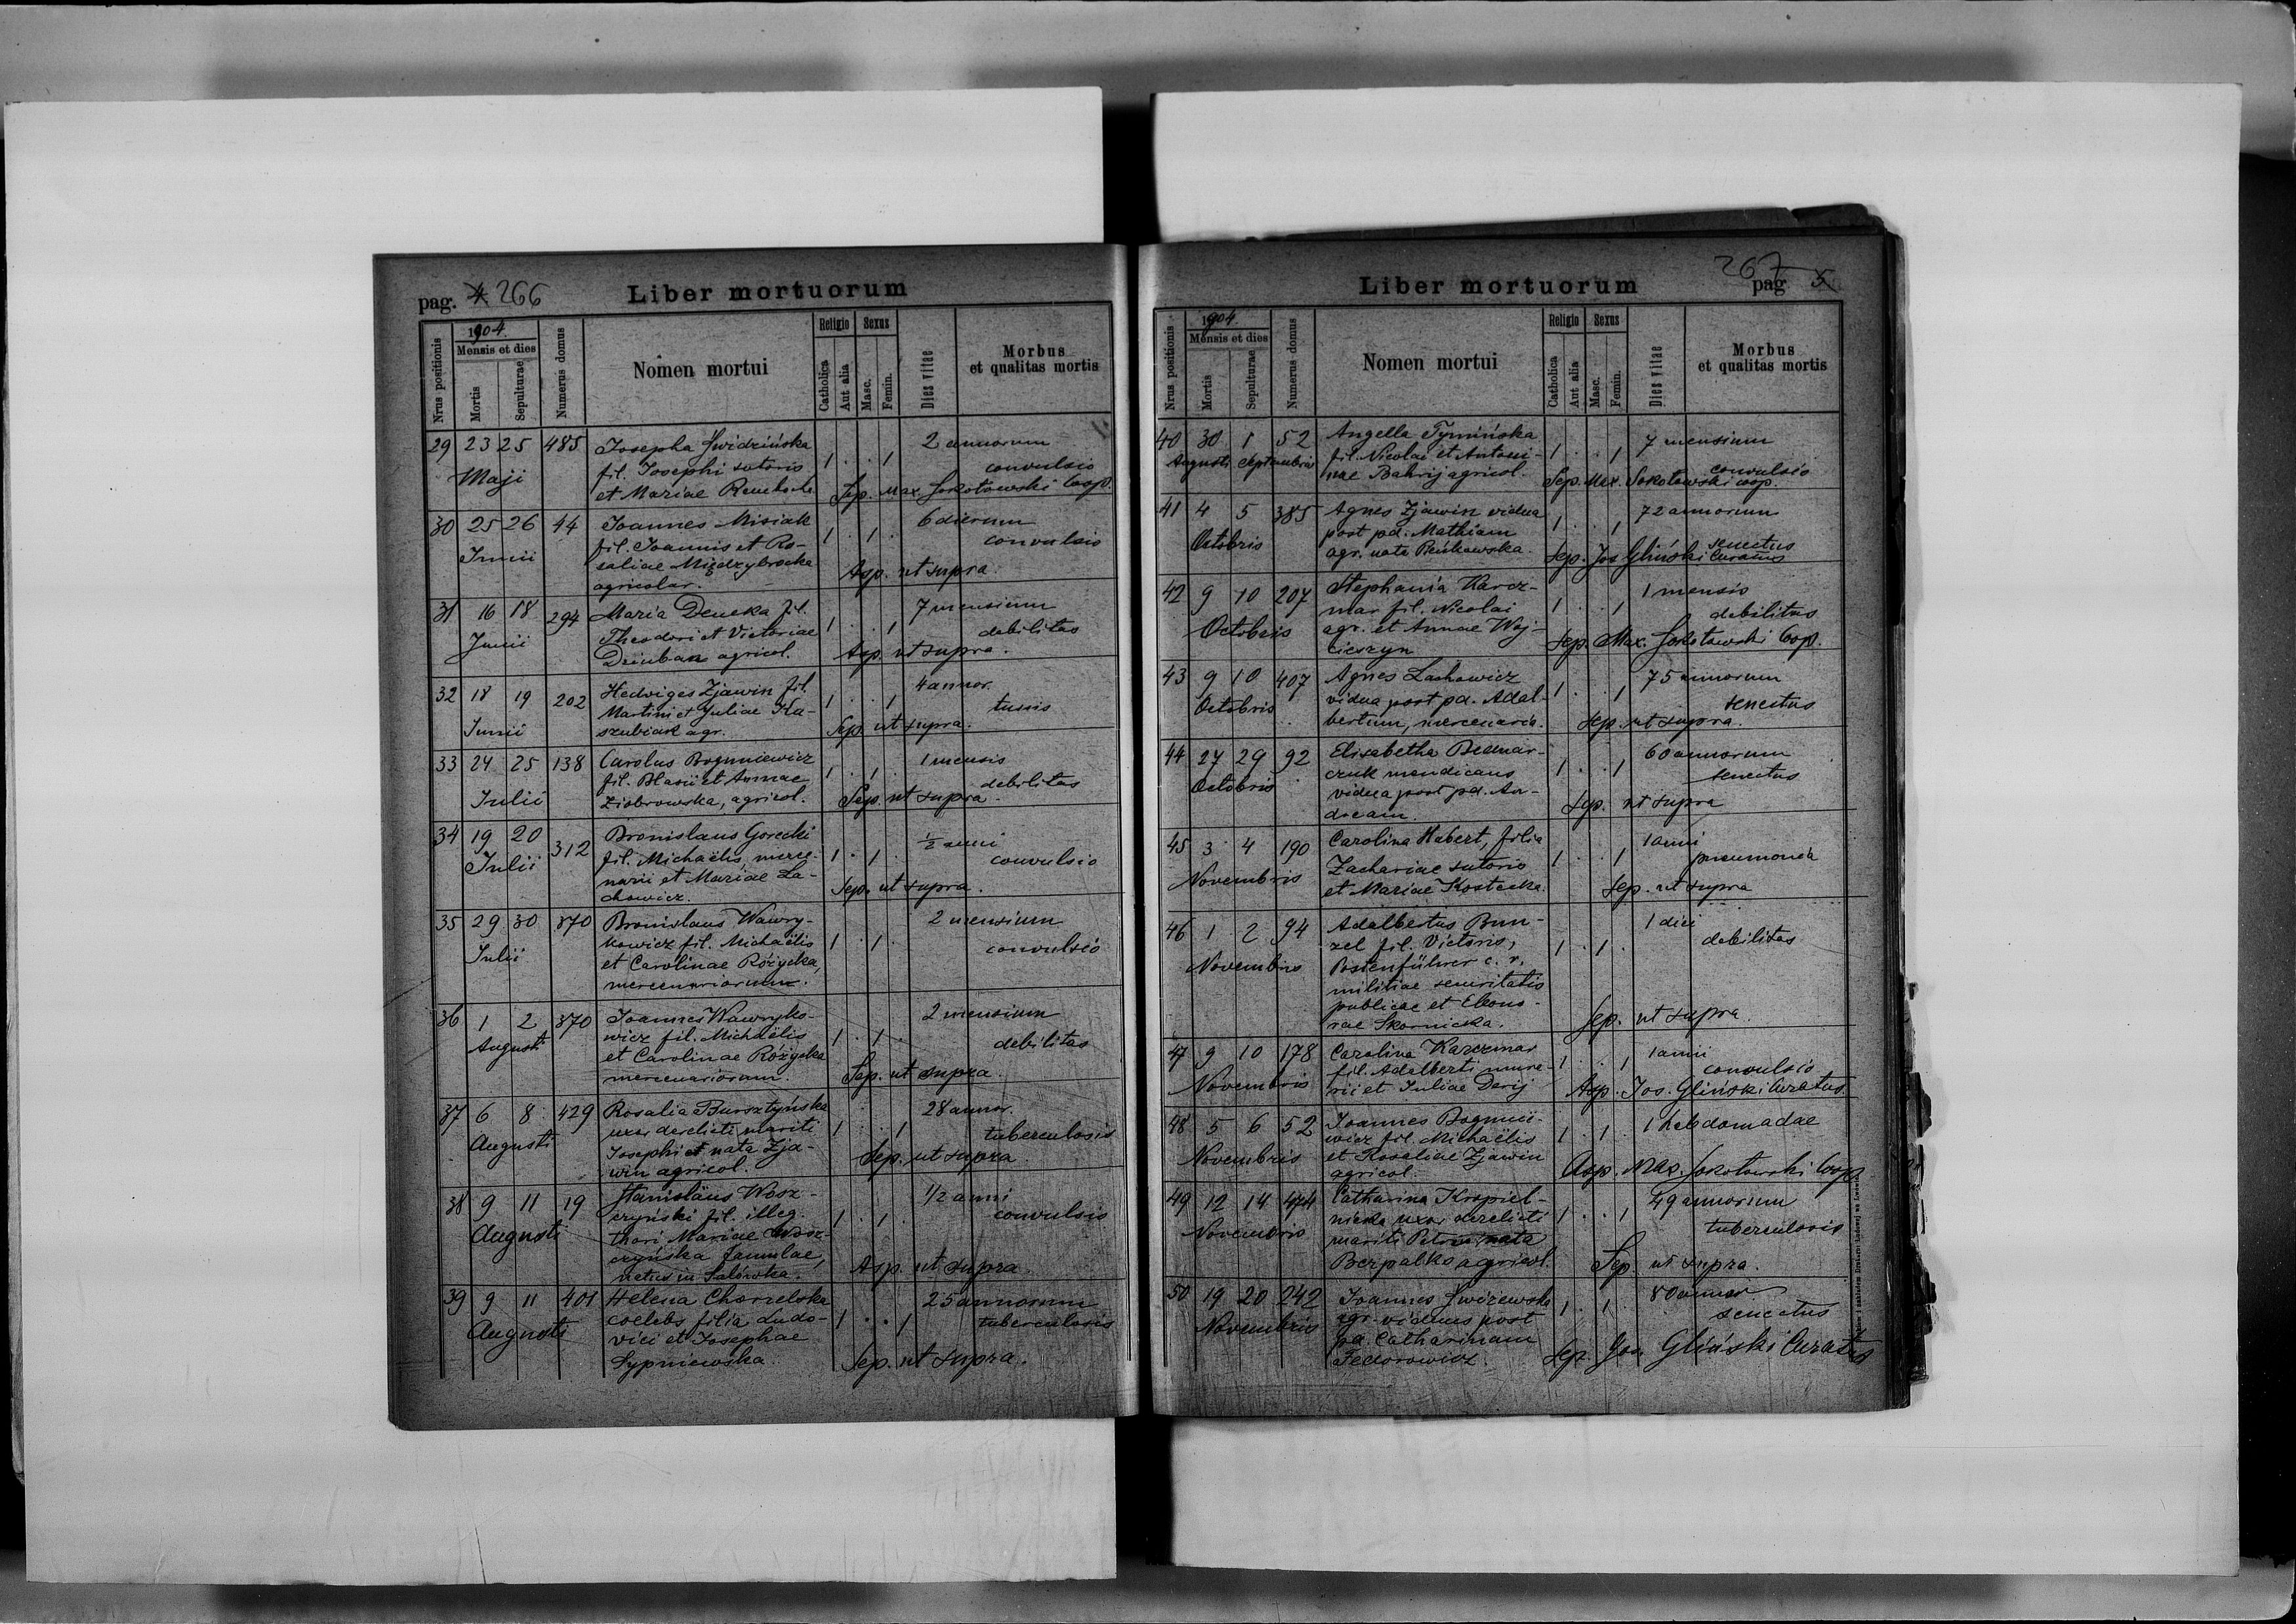 pag. 4 266
Liber mortuorum
1904
Nrus positionis
Mensis et dies
Mortis
Sepulturae
Numerus domus
Nomen mortui
Religio
Catholica
Aut alia
Sexus
Masc.
Femin.
Dies vitae
Morbus
et qualitas mortis
29 23 25 485 Josepha Swidzińska 2 annorum
fil. Josephi sutoris 1 . . 1 convulsio
Maji
et Mariae Sep. Max. Sokołowski Coop.
30 25 26 44 Joannes Misiak 6 dierum
fil. Joannis et Ro- 1 . 1 . convulsio
Junii
saliae Międzybrocka Asp. ut supra.
agricolar.
31 16 18 294 Maria Deneka fil. 7 mensium
Theodori et Victoriae 1 . . 1 debilitas
Junii
Dziuban agricol. Asp. ut supra.
32 18 19 202 Hedviges Zjawin fil. 4 annor.
Martini et Juliae Ka- 1 . . 1 tussis
Junii
szubiak agr. Sep. ut supra.
33 24 25 138 Carolus Bogmniewicz 1 mensis
fil. Blasii et Annae 1 . 1 . debilitas
Julii
Ziobrowska, agricol. Sep. ut supra.
34 19 20 312 Bronislaus Gorecki 1/2 anni
Julii
fil. Michaëlis merce- 1 . 1 . convulsio
narii et Mariae La- Sep. ut supra.
chowicz.
35 29 30 370 Bronislaus Wawry- 2 mensium
kowicz fil. Michaëlis 1 . 1 . convulsio
Julii
et Carolinae Różycka,
mercenariorum.
36 1 2 370 Joannes Wawryko- 2 mensium
Augusti
wicz fil. Michaëlis 1 . 1 . debilitas
et Carolinae Różycka
mercenariorum. Sep. ut supra.
37 6 8 429 Rosalia Bursztyńska 28 annor.
Augusti
uxor derelicti mariti 1 . . 1 tuberculosis
Josephi et nata Zja- Sep. ut supra
win agricol.
38 9 11 19 Stanislaus Wosz- 1/2 anni
Augusti
czyński fil. illeg. 1 . 1 . convulsio
thori Mariae Wosz-
czyńska famulae, Asp. ut supra.
natus in Salówka.
39 9 11 401 Helena Charzelska 25 annorum
Augusti
coelebs filia Ludo- 1 . . 1 tuberculosis
vici et Josephae
Sypniewska. Sep. ut supra.
267
Liber mortuorum
pag 5
1904
Nrus positionis
Mensis et dies
Mortis
Sepulturae
Numerus domus
Nomen mortui
Religio
Catholica
Aut alia
Sexus
Masc.
Femin.
Dies vitae
Morbus
et qualitas mortis
40 30 1 52 Angella Tymińska 7 mensium
Augusti Septembris
fil. Nicolai et Antoni- 1 . . 1 convulsio
nae Bahrij agricol. Sep. Max. Sokołowski coop.
41 4 5 385 Agnes Zjawin vidua 72 annorum
post pd. Mathiam 1 . . 1 senectus
Octobris
agr. nata Sep. Jos Gliński Curatus
42 9 10 207 Stephania Karcz- 1 mensis
mar fil. Nicolai 1 . . 1 debilitas
Octobris
agr. et Annae Woj- Sep. Max. Sokołowski Coop.
cieszyn
43 9 10 407 Agnes Lachowicz 75 annorum
Octobris
vidua post pd. Adal- 1 . . 1 senectus
bertum, mercenaria. Sep. ut supra.
44 27 29 92 Elisabetha Bednar- 60 annorum
Octobris
czuk mendicans 1 . . 1 senectus
vidua post pd. An- Sep. ut supra
dream.
45 3 4 190 Carolina Habert, filia 1 anni
Novembris
Zachariae sutoris 1 . . 1 pneumonia
et Mariae Kostecka. Sep. ut supra
46 1 2 94 Adalbertus Bun- 1 diei
zel fil. Victoris, 1 . 1 . debilitas
Novembris
Postenführer c. r.
militiae securitatis
publicae et Eleono-
rae Skornicka. Sep. ut supra.
47 9 10 178 Carolina Karczmar 1 anni
fil. Adalberti mura- 1 . . 1 convulsio
Novembris
rii et Juliae Derij Asp. Jos. Gliński Curatus.
48 5 6 52 Joannes Bogmnie- 1 hebdomadae
wicz fil. Michaëlis 1 . 1 .
Novembris
et Rosaliae Zjawin Asp. Max. Sokołowski Coop
agricol.
49 12 14 474 Catharina Kropiel- 49 annorum
nicka uxor derelicti 1 . . 1 tuberculosis
Novembris
mariti Petri nata
Bezpalko agricol. Sep. ut supra.
50 19 20 242 Joannes Swizewski 80 annor
agr. viduus post 1 . 1 . senectus
Novembris
pd. Catharinam
Fedorowicz. Sep. Jos. Gliński Curatus